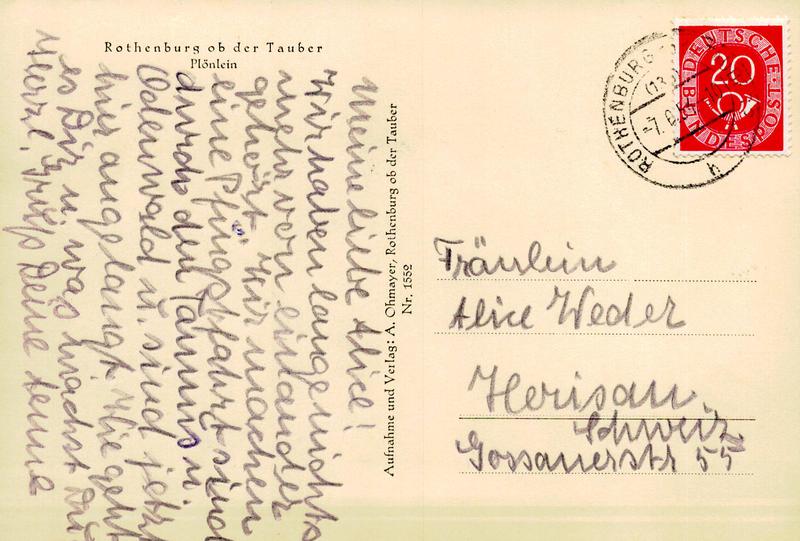 Rothenburg ob der Tauber
Plönlein
Meine liebe Alice!
Wir haben lange nichts
mehr von einander
gehört. Wir machen
eine Pfingstfahrt sind
durch den Taunus u.
Odenwald u. sind jetzt
hier angelangt. Wie geht
es Dir u. was machst Du
Herzl. Grüße Deine Aenne
Aufnahme und Verlag: A. Ohmayer, Rothenburg ob der Tauber
Nr. 1552
DEUTSCHE BUNDESPOST
20
ROTHENBURG
Fräulein
Alice Weder
Herisau
Schweiz
Gossauerstr 55